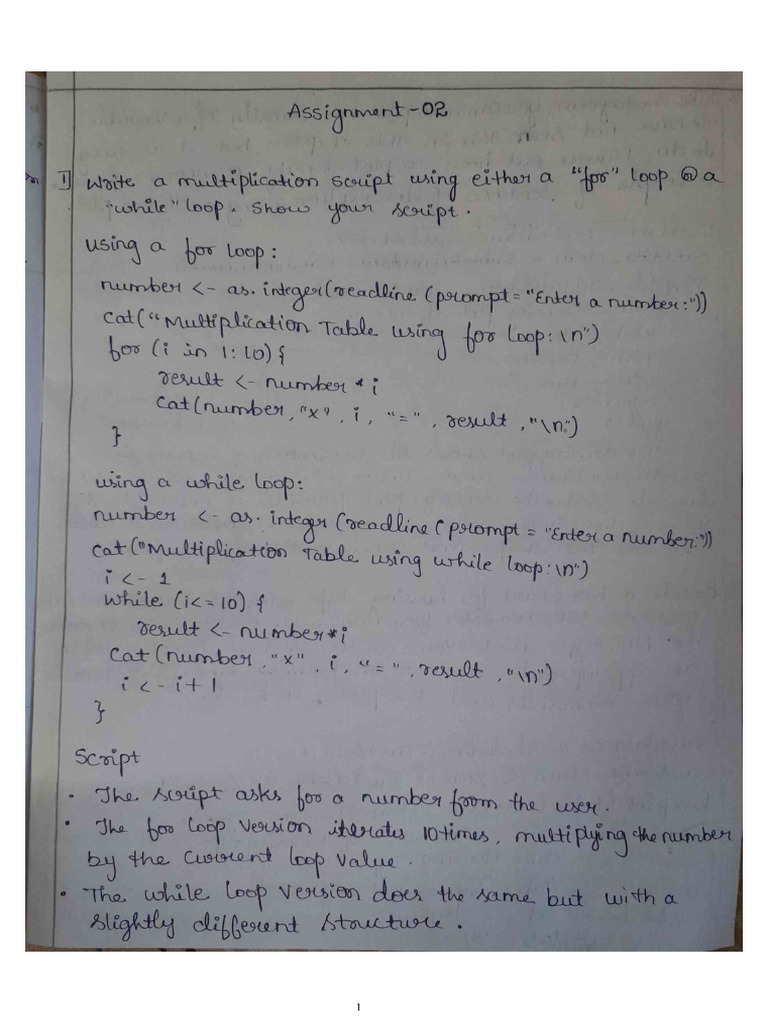 Assignment-02
1] Write a multiplication script using either a "for" loop or a
"while" loop. Show your script.
using a for loop:
number <- as.integer(readline (prompt = "Enter a number:"))
cat("Multiplication Table using for loop:\n")
for (i in 1:10){
result <- number * i
cat(number, "x", i, "=", result, "\n")
}
using a while loop:
number <- as.integer (readline (prompt = "Enter a number:"))
cat("Multiplication Table using while loop:\n")
i <- 1
while (i<=10) {
result <- number*i
cat(number, "x", i, "=", result, "\n")
i <- i+1
}
Script
• The script asks for a number from the user.
• The for loop version iterates 10 times, multiplying the number
by the current loop value.
• The while loop version does the same but with a
slightly different structure.
1